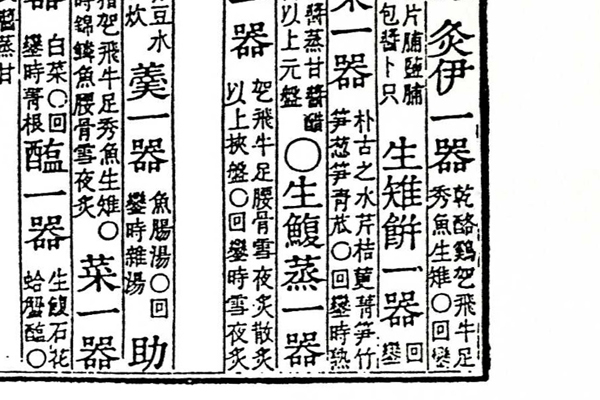 灸伊一器
乾酪鷄乫飛牛足
秀魚生雉〇回鑾
片脯鹽脯
包醬卜只
生雉餠一器
回
鑾
一器
朴古之水芹桔莄菁笋竹
笋葱笋靑苽〇回鑾時熟
醬蒸甘醬醋
以上元盤
〇生鰒蒸一器
器
乫飛牛足腰骨雪夜炙散炙
以上挾盤〇回鑾時雪夜炙
豆水
炊
羹一器
魚腸湯〇回
鑾時雜湯
助
乫飛牛足秀魚生雉〇
時錦鱗魚腰骨雪夜炙
菜一器
器
白菜〇回
鑾時菁根
醢一器
生鰒石花
蛤蟹醢〇
蒸甘